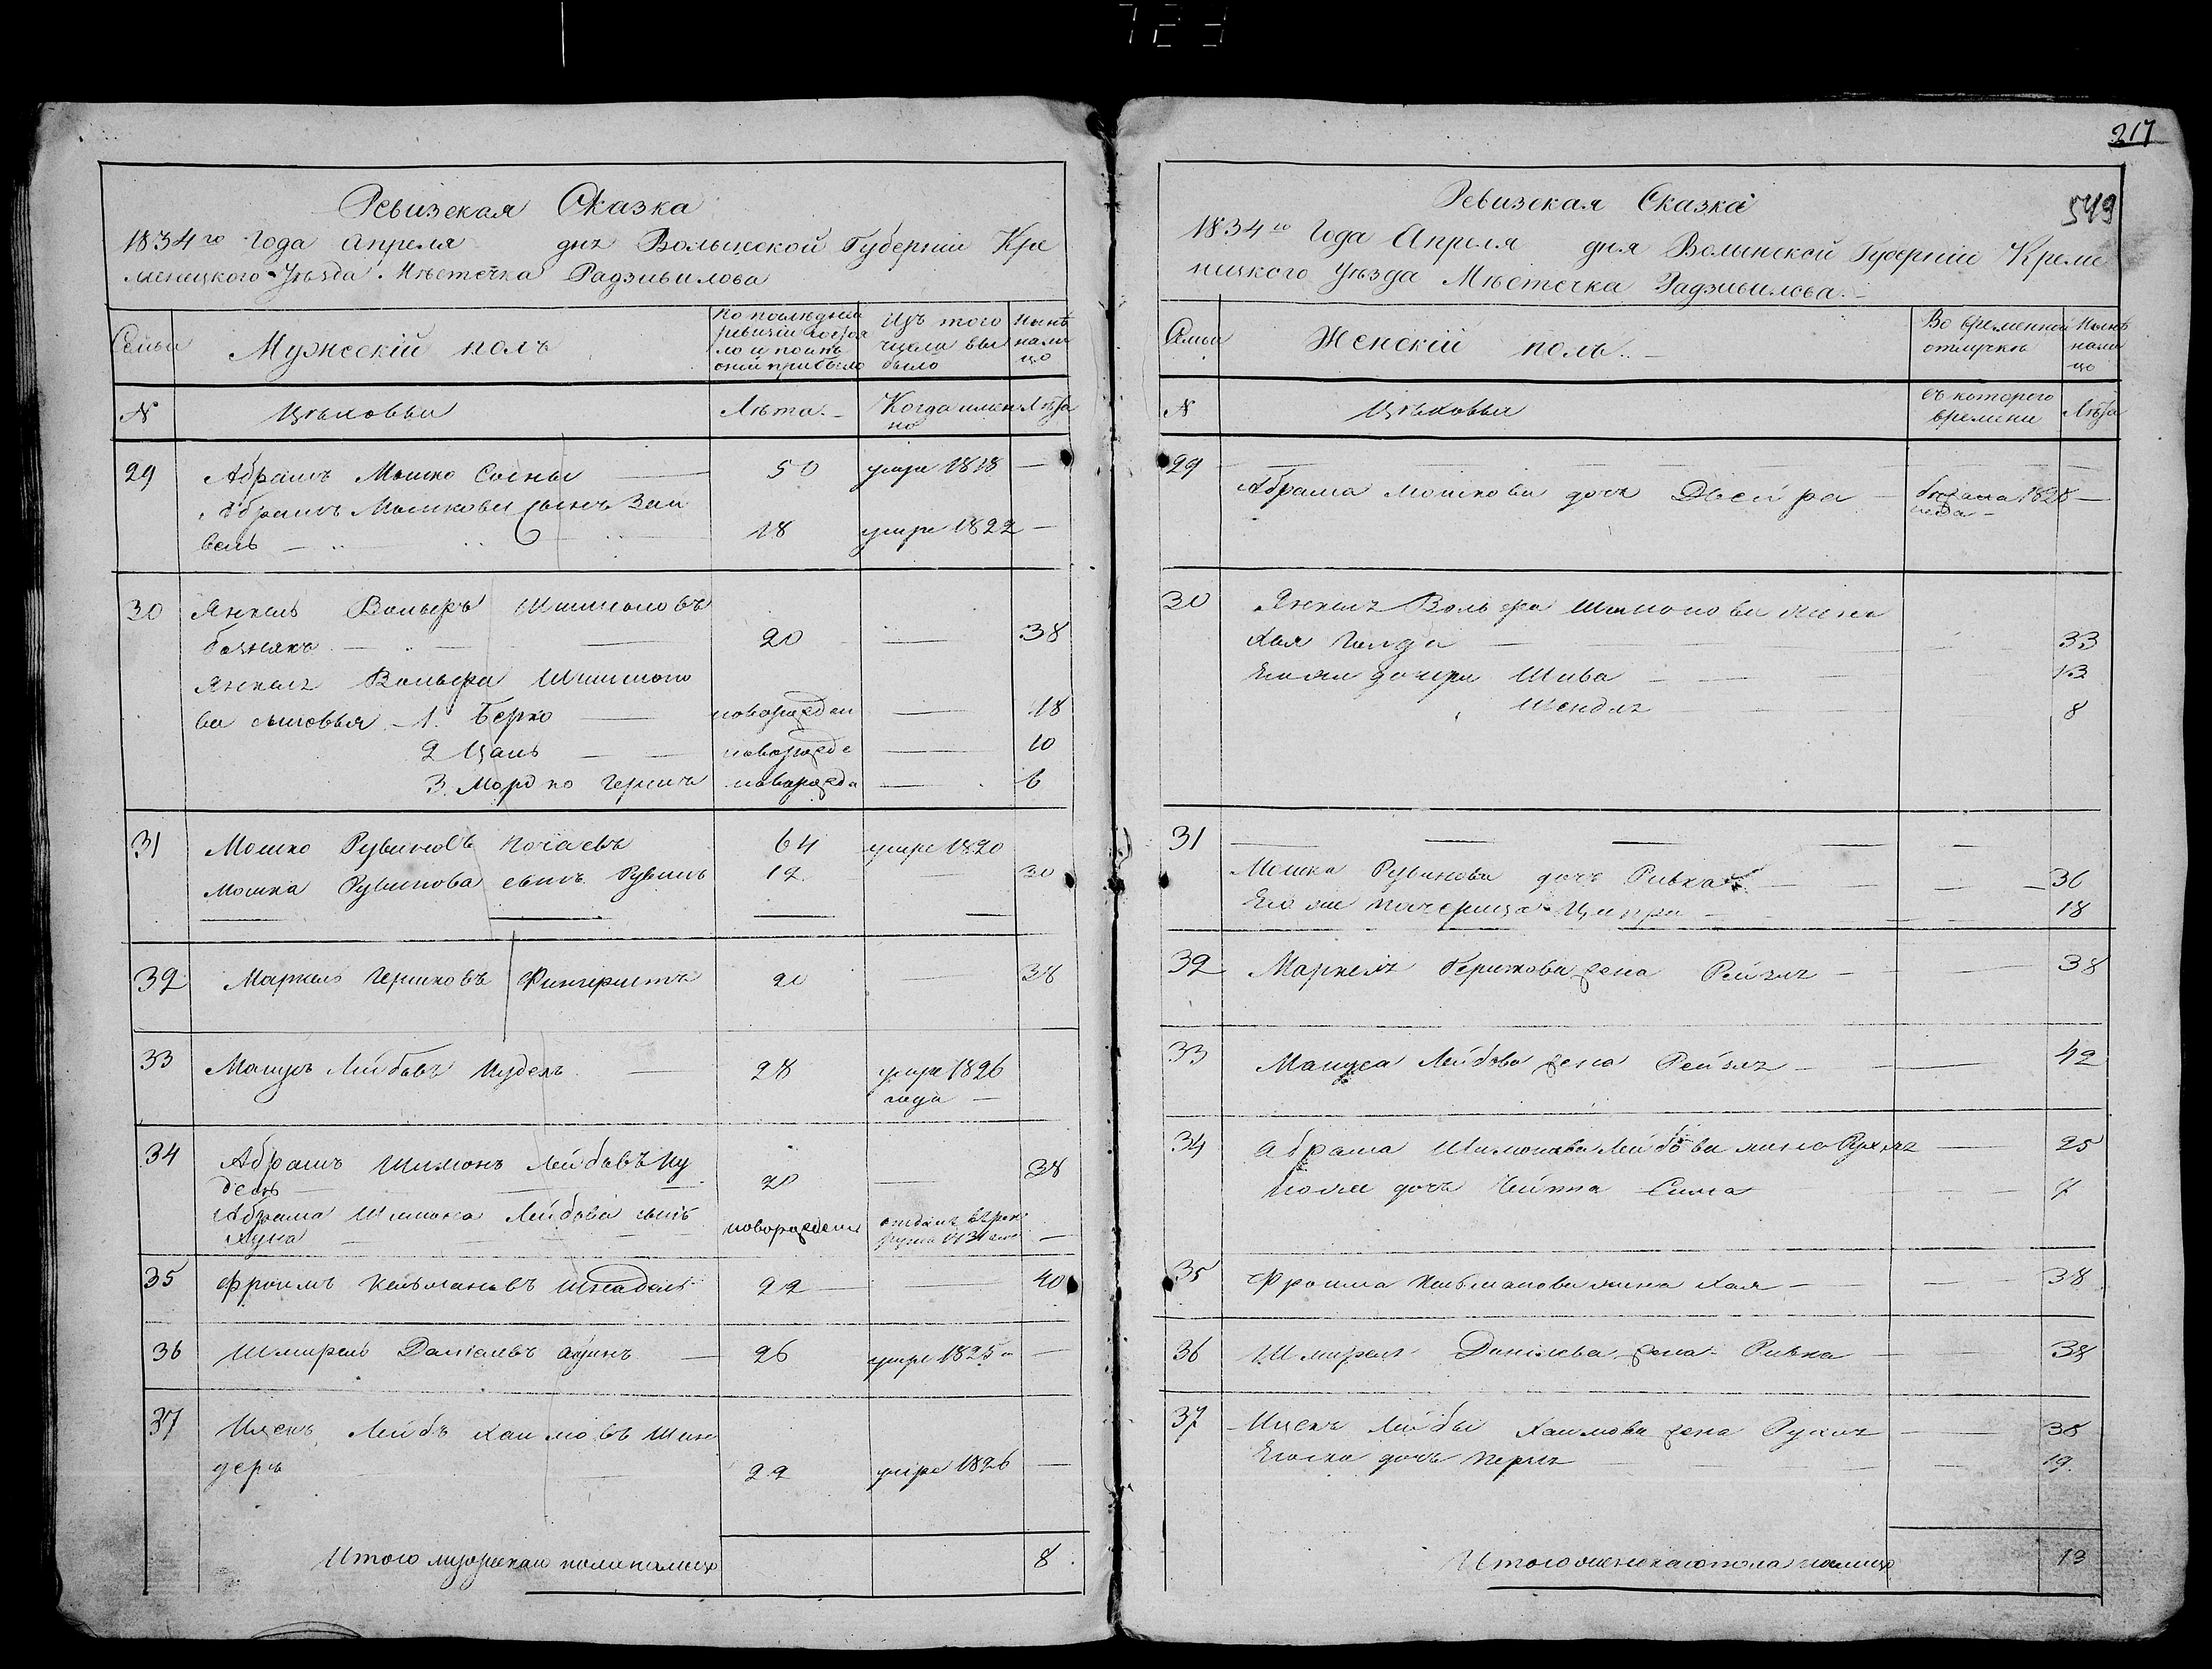 217
549
Ревизская Сказка
1834го Года Апреля дня Волынской Губерніи Кре
менецкого Уѣзда Мѣстечка Радзивилова
Семьи
Мужескій полъ
По последней
ревизіи состоя
ло и послѣ
оной прибыло
Изъ того
числа вы
было
Нынѣ
нали
цо
№
Лѣта
Когда имен
но
Лѣта
29
Абрамъ Мошко
50
умре 1818
—
Абрамъ Мошковъ сынъ Зей
вель
18
умре 1822
—
30
Янкель Вольфъ Шимоновъ
20
—
38
Янкель Вольфа Шимоно
ва сыновья 1. Берко
новорожден
—
18
2 Цаль
новорожде
—
10
3. Мордко Гершъ
новорожде
—
6
31
Мошко Рувиновъ Почаевъ
64
умре 1820
Мошка Рувинова сынъ Рувинъ
12
—
30
32
Маркель Гершковъ
20
—
38
33
Лейбовъ Пудель
28
умре 1826
года
34
Абрамъ Шимонъ Лейбовъ Пу
дель
20
—
38
Абрама Шимона Лейбова сынъ
новорожденъ
отданъ въ рек
—
35
Фроимъ Кельмановъ Шнадель
22
—
40
36
Шмирель Даніелевъ
26
умре 1825
—
37
Ицекъ Лейбъ Хаимовъ Шней
деръ
22
умре 1826
—
Итого мужеска пола налицо
8
Ревизская Сказка
1834го Года Апреля дня Волынской Губерніи Креме
ницкого Уѣзда Мѣстечка Радзивилова
Семьи
Женскій полъ
Во временной
отлучкѣ
Нынѣ
нали
цо
№
съ которого
времени
Лѣта
29
Абрама Мошкова дочь Двейра
1828
—
30
Янкель Вольфа Шимонова жена
Хая Голда
33
Его же дочери Шива
13
Шендля
8
31
Мошка Рувинова дочь Ривка
36
Его же Ципра
18
32
Маркеля Гершкова жена Рейзля
38
33
Лейбова жена Рейзля
42
34
Абрама Шимонова Лейбова жена Рухля
25
дочь Сима
7
35
Фроима Кельманова жена Хая
38
36
Шмиреля Данилева жена Ривка
38
37
Ицекъ Лейбы Хаимова жена Рухля
38
Его же дочь Перля
19
Итого женскаго пола налицо
13